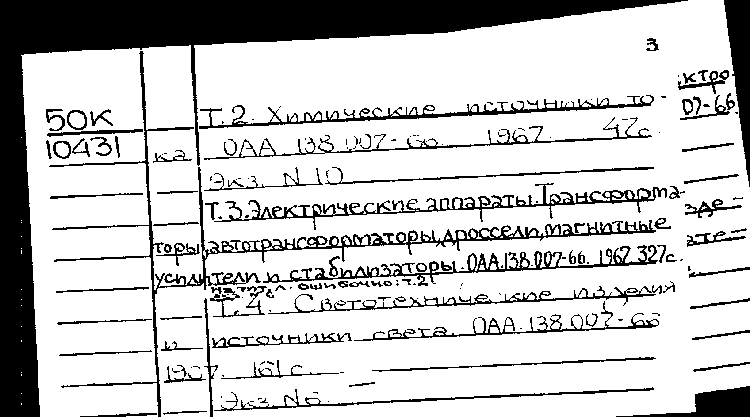 3
50К
10431
Т.2. Химические источники то-
ка ОАА.138.007-66 1967. 47с.
Экз. N 10
Т.3. Электрические аппараты. Трансформа-
торы, автотрансформаторы, дроссели, магнитные
усилители и стабилизаторы. ОАА.138.007-66. 1967. 327с.
На тит. л. ошибочно: т.2!
Т.4. Светотехнические изделия
и источники света. ОАА.138.007-66
1967. 161с.
Экз. N6.
ктро-
07-66